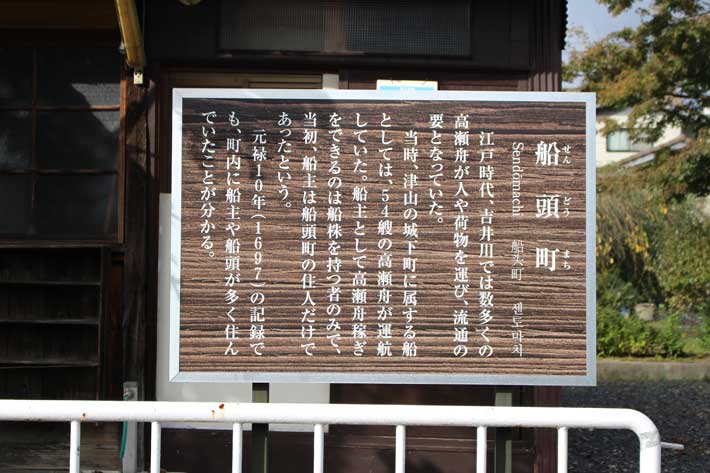 船頭町
せんどうまち
Sendomachi 船头町 센도마치
江戸時代、吉井川では数多くの
高瀬舟が人や荷物を運び、流通の
要となっていた。
当時、津山の城下町に属する船
としては、54艘の高瀬舟が運航
していた。船主として高瀬舟稼ぎ
をできるのは船株を持つ者のみで、
当初、船主は船頭町の住人だけで
あったという。
元禄10年(1697)の記録で
も、町内に船主や船頭が多く住ん
でいたことが分かる。